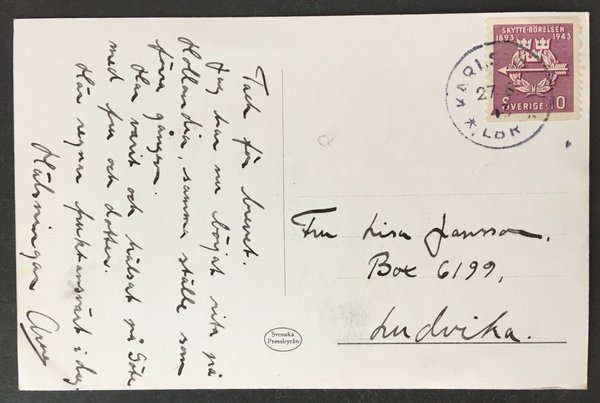 Tack för brevet.
Jag har nu börjat rita på
Hollandia, samma ställe som
förra gången.
Har varit och hälsat på Göte
med fru och dotter.
Här regnar fruktansvärt i dag.
Hälsningar
SKYTTE-RÖRELSEN
1893 1943
SVERIGE 10
27
LBR
Fru Lisa Jansson,
Box 6199,
Ludvika.
Svenska
Pressbyrån